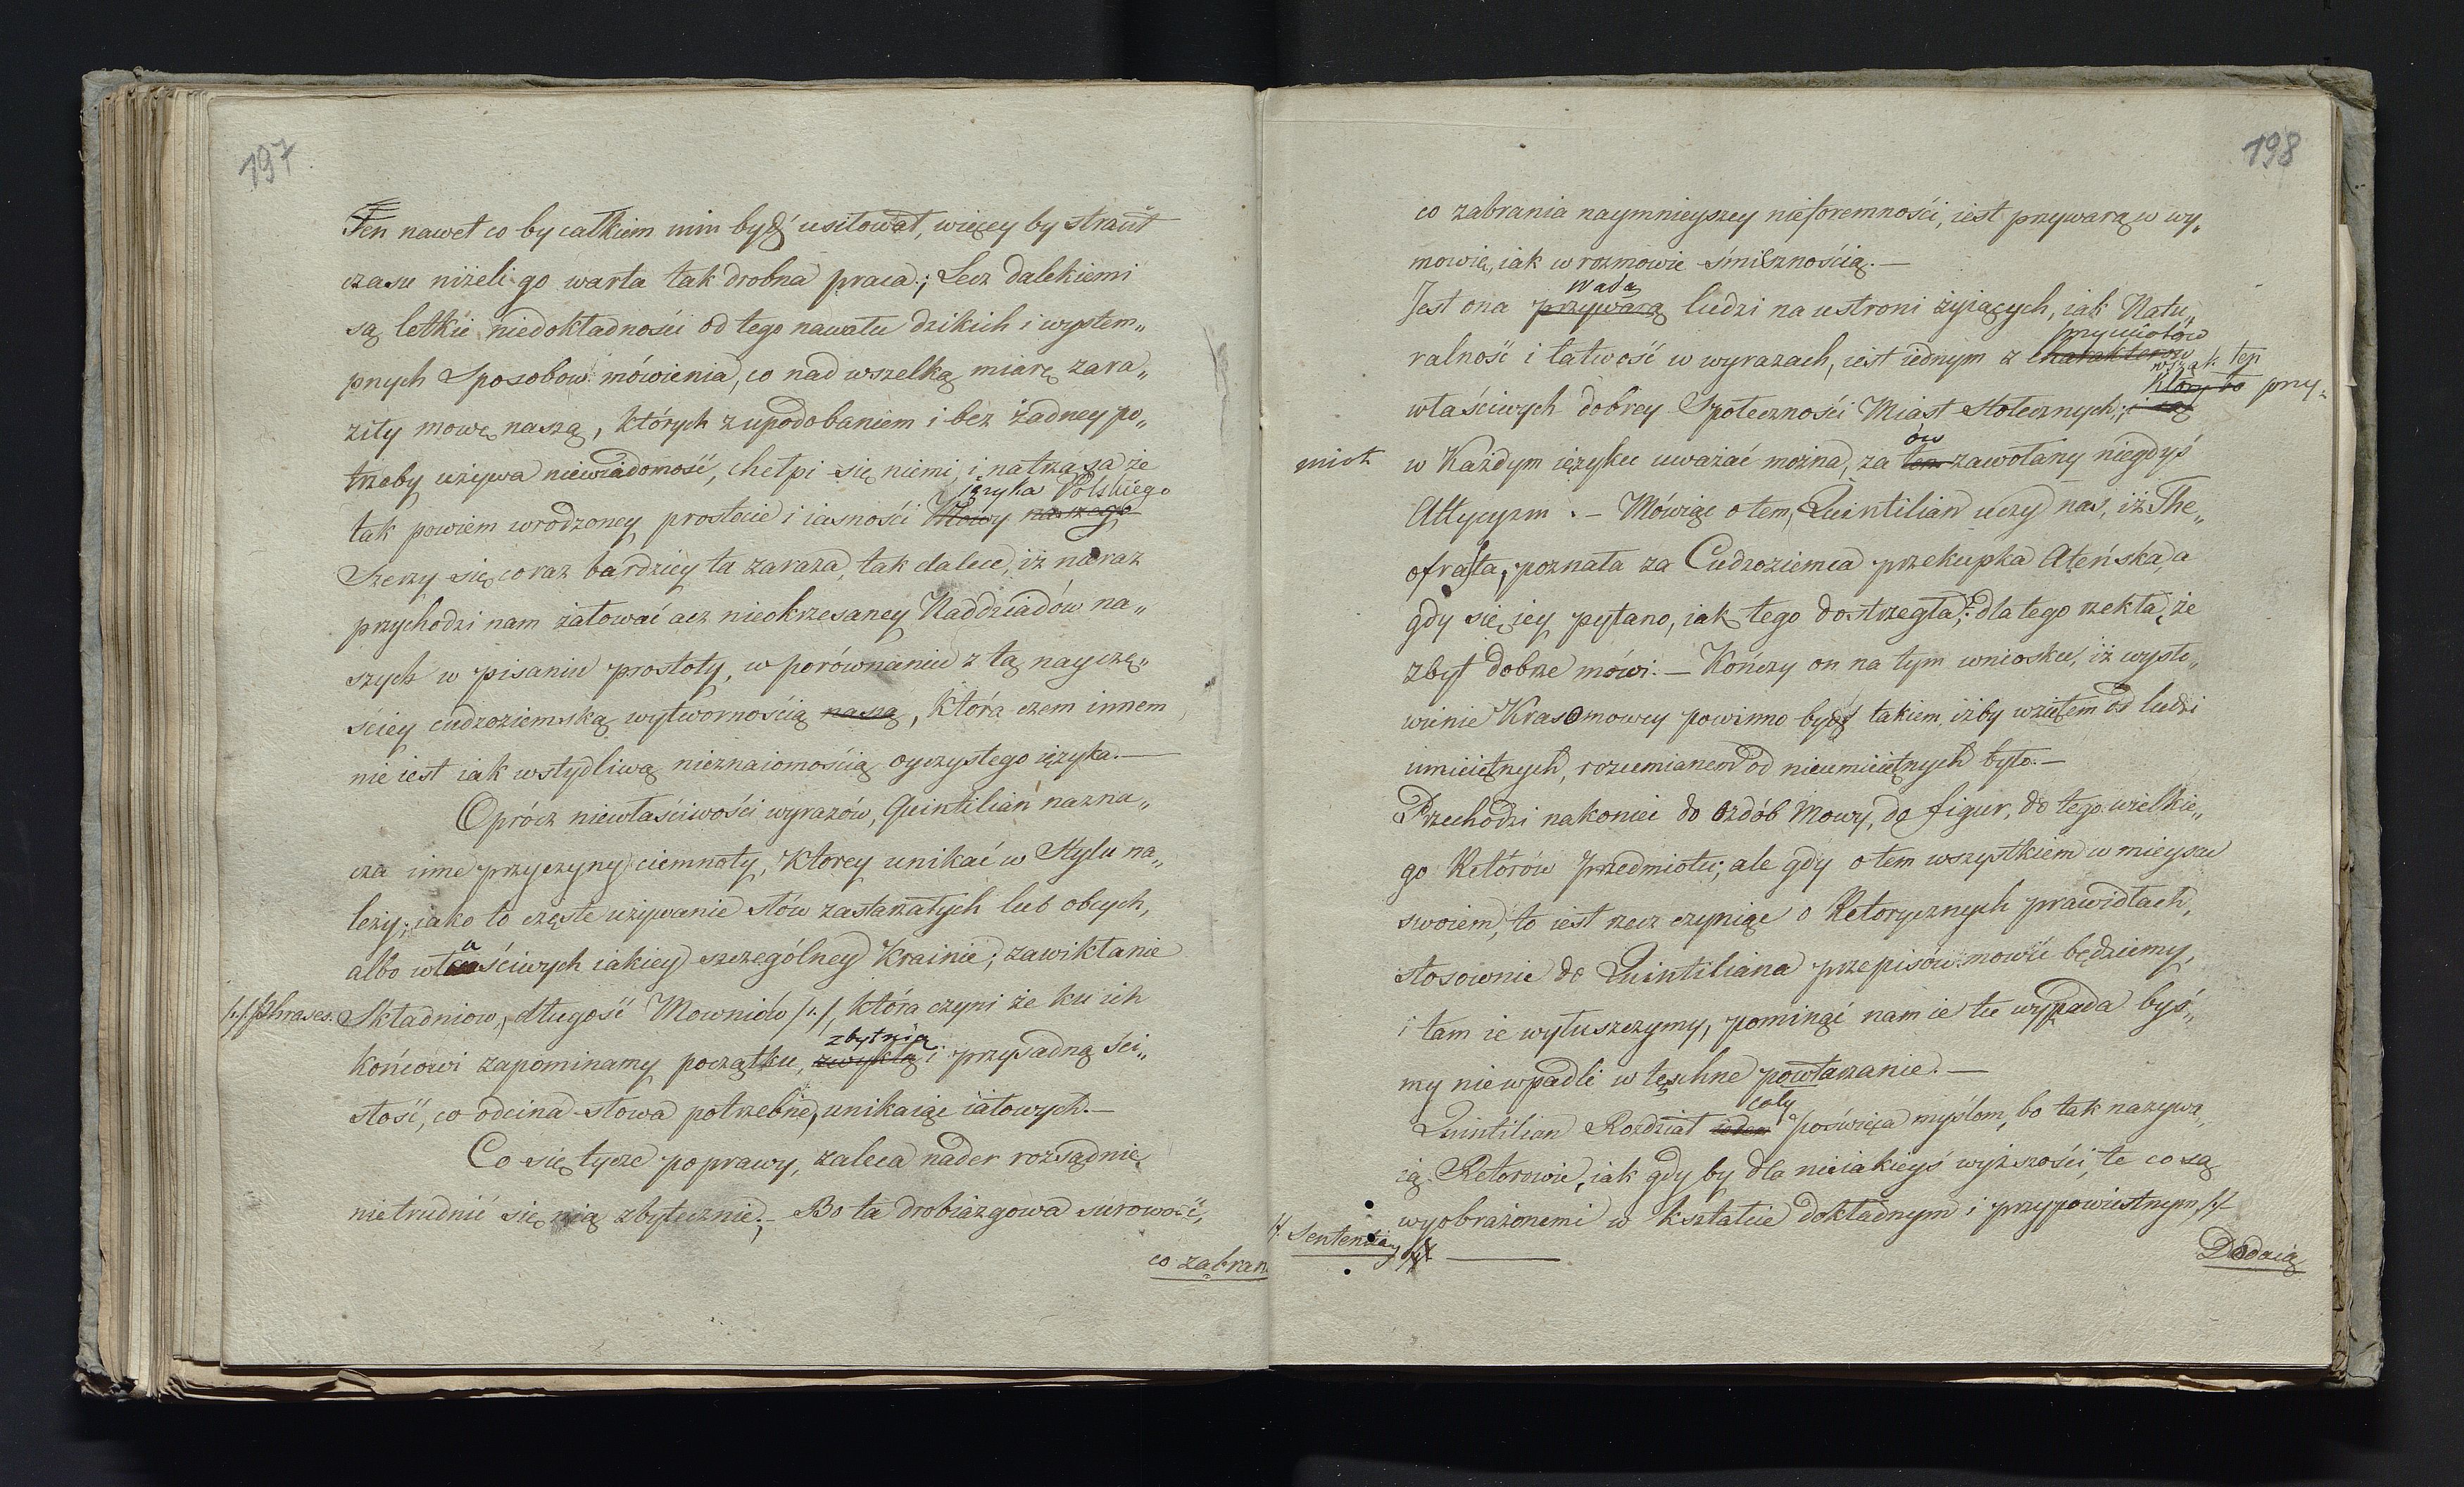 197
Ten nawet co by całkiem nim bydź usiłował, więcey by strawił
czasu niżeli go warta tak drobna praca; Lecz dalekiemi
są letkie niedokładności od tego nawału dzikich i wystem„
pnych Sposobow mówienia, co nad wszelką miarę zara„
ziły mowę naszą, których z upodobaniem i bez żadney po„
trzeby używa niewiadomość, chełpi się niemi, i natrząsa że
języka Polskiego
tak powiem wrodzoney prostocie i iasności Mowy naszego
Szerzy się coraz bardziey ta zaraza, tak dalece, iż nieraz
przychodzi nam żałować acz nieokrzesaney Naddziadów na„
szych w pisaniu prostoty, w porównaniu z tą nayczę„
ściey cudzoziemską wytwornością naszą, która czem innem
nie iest iak wstydliwą nieznaiomością oyczystego ięzyka.—
Oprócz niewłaściwości wyrazów, Quintilian nazna„
cza inne przyczyny ciemnoty, ktorey unikać w Stylu na„
leży; iako to częste używanie słów zastarzałych lub obcych,
a
albo właściwych iakiey szczególney Krainie; zawikłanie
/./ Phrases. Składniow, długość Mowniów /./, która czyni że ku ich
zbytnią
końcowi zapominamy początku, zwykłą i przysadną ści„
słość, co odcina słowa potrzebne, unikaiąc iałowych.—
Co się tycze poprawy, zaleca nader rozsądnie
nie trudnić się nią zbytecznie.— Bo ta drobiazgowa surowość,
co zabran
198
co zabrania naymnieyszey nieforemności, iest przywarą w wy„
mowie, iak w rozmowie śmiesznością.—
wadą
Jest ona przywarą ludzi na ustroni żyiących, iak Natu„
przymiotów
ralność i łatwość w wyrazach, iest iednym z charakterow
wszak ten
właściwych dobrey Społeczności Miast Stołecznych; i
Który to przy„
ów
miot w Każdym ięzyku uważać można, za ten zawołany niegdyś
Attycyzm.— Mówiąc o tem, Quintilian uczy nas, iż The„
ofrasta, poznała za Cudzoziemca przekupka Ateńska, a
gdy się iey pytano, iak tego dostrzegła? dla tego rzekła, że
zbyt dobrze mówi.— Kończy on na tym wniosku, iż wysło„
wienie Krasomowcy powinno bydź takiem, iżby wziętem od ludzi
umieiętnych, rozumianem od nieumieiętnych było.—
Przechodzi nakoniec do ozdób Mowy, do figur, do tego wielkie„
go Retórów Przedmiotu; ale gdy o tem wszystkiem w mieyscu
swoiem, to iest rzecz czyniąc o Retorycznych prawidłach,
stosownie do Quintiliana przepisów mowić będziemy,
i tam ie wyłuszczymy, pominąć nam ie tu wypada byś„
my nie wpadli w tęschne powtarzanie.—
cały
Quintilian Rozdział ieden poświęca myślom, bo tak nazywa„
ią Retorowie, iak gdy by dla nieiakieyś wyższości, te co są
wyobrażonemi w kształcie dokładnym i przypowiestnym /./
/. Sentencia
Dodaią